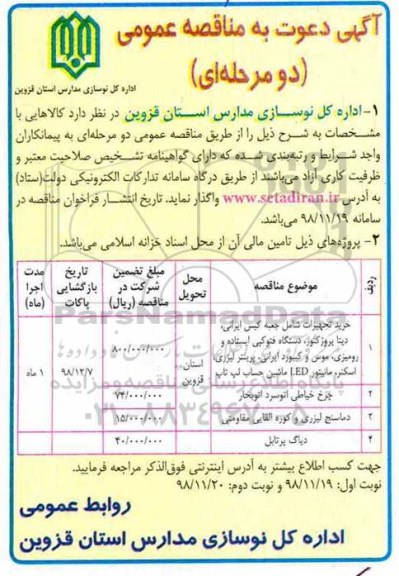 آگهی دعوت به مناقصه عمومی
(دو مرحله‌ای)
اداره کل نوسازی مدارس استان قزوین
۱- اداره کل نوسازی مدارس استان قزوین در نظر دارد کالاهایی با
مشخصات به شرح ذیل را از طریق مناقصه عمومی دو مرحله‌ای به پیمانکاران
واجد شرایط و رتبه‌بندی شده که دارای گواهینامه تشخیص صلاحیت معتبر و
ظرفیت کاری آزاد می‌باشند از طریق درگاه سامانه تدارکات الکترونیکی دولت(ستاد)
به آدرس www.setadiran.ir واگذار نماید. تاریخ انتشار فراخوان مناقصه در
سامانه ۹۸/۱۱/۱۹ می‌باشد.
۲- پروژه‌های ذیل تامین مالی آن از محل اسناد خزانه اسلامی می‌باشد.
ردیف موضوع مناقصه مبلغ تضمین شرکت در مناقصه (ریال) محل تحویل تاریخ بازگشایی پاکات مدت اجرا (ماه)
۱ خرید تجهیزات شامل جعبه کیس ایرانی،
دیتا پروژکتور، دستگاه فتوکپی ایستاده و
رومیزی، موس و کیبورد ایرانی، پرینتر لیزری،
اسکنر، مانیتور LED ماشین حساب لپ تاپ
۸۰۰/۰۰۰/۰۰۰ استان قزوین ۹۸/۱۲/۷ ۱ ماه
۲ چرخ خیاطی اتوسرد اتوبخار ۷۴/۰۰۰/۰۰۰
۳ دماسنج لیزری و کوره القایی مقاومتی ۱۵/۰۰۰/۰۰۰
۴ دیاگ پرتابل ۴۰/۰۰۰/۰۰۰
ParsNamadData
پایگاه اطلاع رسانی مناقصه و مزایده
۰۲۱-۸۸۳۴۹۶۷۰-۵
جهت کسب اطلاع بیشتر به آدرس اینترنتی فوق‌الذکر مراجعه فرمایید.
نوبت اول: ۹۸/۱۱/۱۹ و نوبت دوم: ۹۸/۱۱/۲۰
روابط عمومی
اداره کل نوسازی مدارس استان قزوین